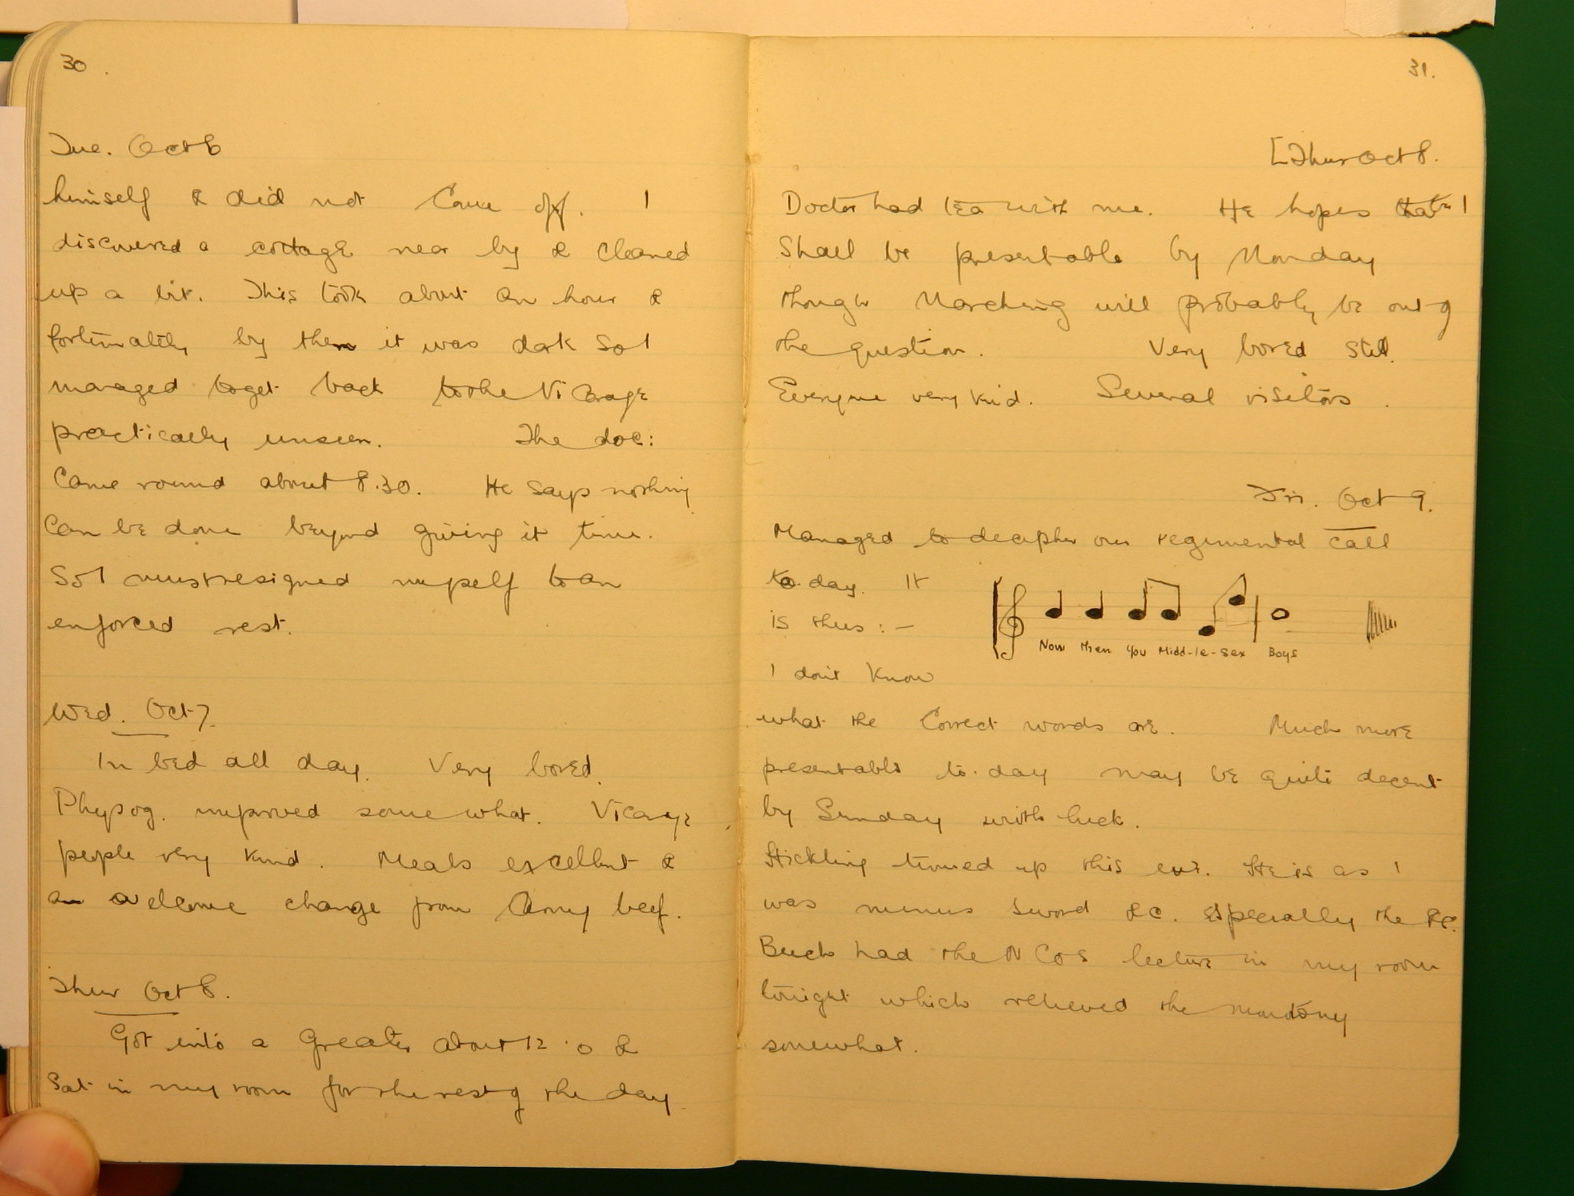 30.
Tue. Oct 6
himself & did not come off. I
discovered a cottage near by & cleaned
up a bit. This took about an hour &
fortunately by then it was dark so I
managed to get back to the Vicarage
practically unseen. The doc:
came round about 8.30. He says nothing
can be done beyond giving it time.
So I must resigned myself to an
enforced rest.
Wed. Oct 7.
In bed all day. Very bored.
Physog. improved somewhat. Vicarage
people very kind. Meals excellent &
a welcome change from Army beef.
Thur Oct 8.
Got into a greatcoat about 12.0 &
sat in my room for the rest of the day
31.
[Thur Oct 8.
Doctor had tea with me. He hopes that I
shall be presentable by Monday
though marching will probably be out of
the question. Very bored still.
Everyone very kind. Several visitors.
Fri. Oct 9.
Managed to decipher our regimental call
to day. It
is thus: —
Now then you Midd-le-sex Boys
I don't know
what the correct words are. Much more
presentable to-day may be quite decent
by Sunday with luck.
Stickling turned up this eve. He is as I
was minus sword &c. especially the &c.
Buck had the NCOs lecture in my room
tonight which relieved the monotony
somewhat.